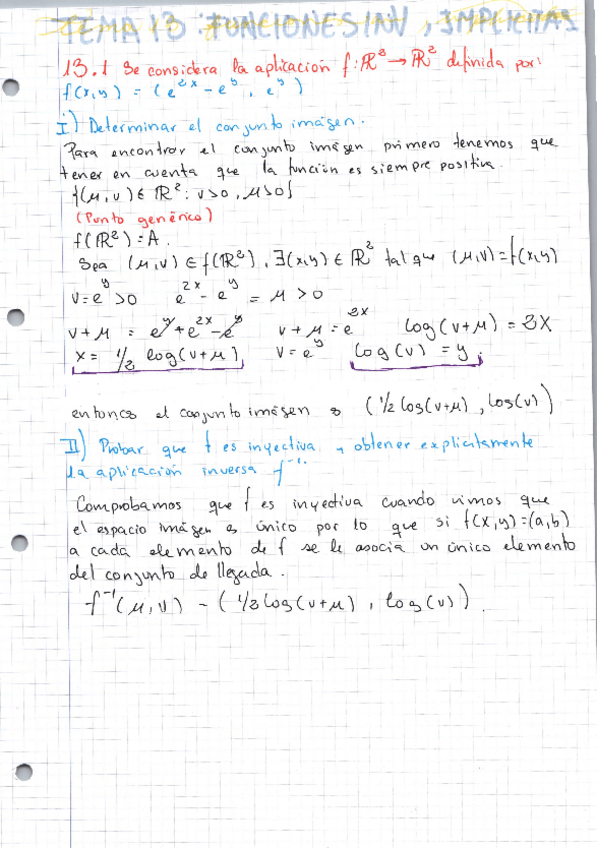 TEMA 13 FUNCIONES INV, IMPLICITAS
13.1 Se considera la aplicación f: ℝ² → ℝ² definida por:
f(x,y) = (e^{2x} - e^y, e^y)
I) Determinar el conjunto imágen.
Para encontrar el conjunto imágen primero tenemos que
tener en cuenta que la función es siempre positiva.
{(μ,v) ∈ ℝ² : v>0, μ>0}
(Punto genérico)
f(ℝ²) = A.
Sea (μ,v) ∈ f(ℝ²), ∃(x,y) ∈ ℝ² tal que (μ,v) = f(x,y)
v = e^y > 0 e^{2x} - e^y = μ > 0
v + μ = e^y + e^{2x} - e^y v + μ = e^{2x} log(v+μ) = 2x
x = 1/2 log(v+μ) v = e^y log(v) = y.
entonces el conjunto imágen es (1/2 log(v+μ), log(v))
II) Probar que f es inyectiva y obtener explicitamente
la aplicación inversa f^{-1}.
Comprobamos que f es inyectiva cuando vimos que
el espacio imágen es único por lo que si f(x,y)=(a,b)
a cada elemento de f se le asocia un único elemento
del conjunto de llegada.
f^{-1}(μ,v) - (1/2 log(v+μ), log(v)).